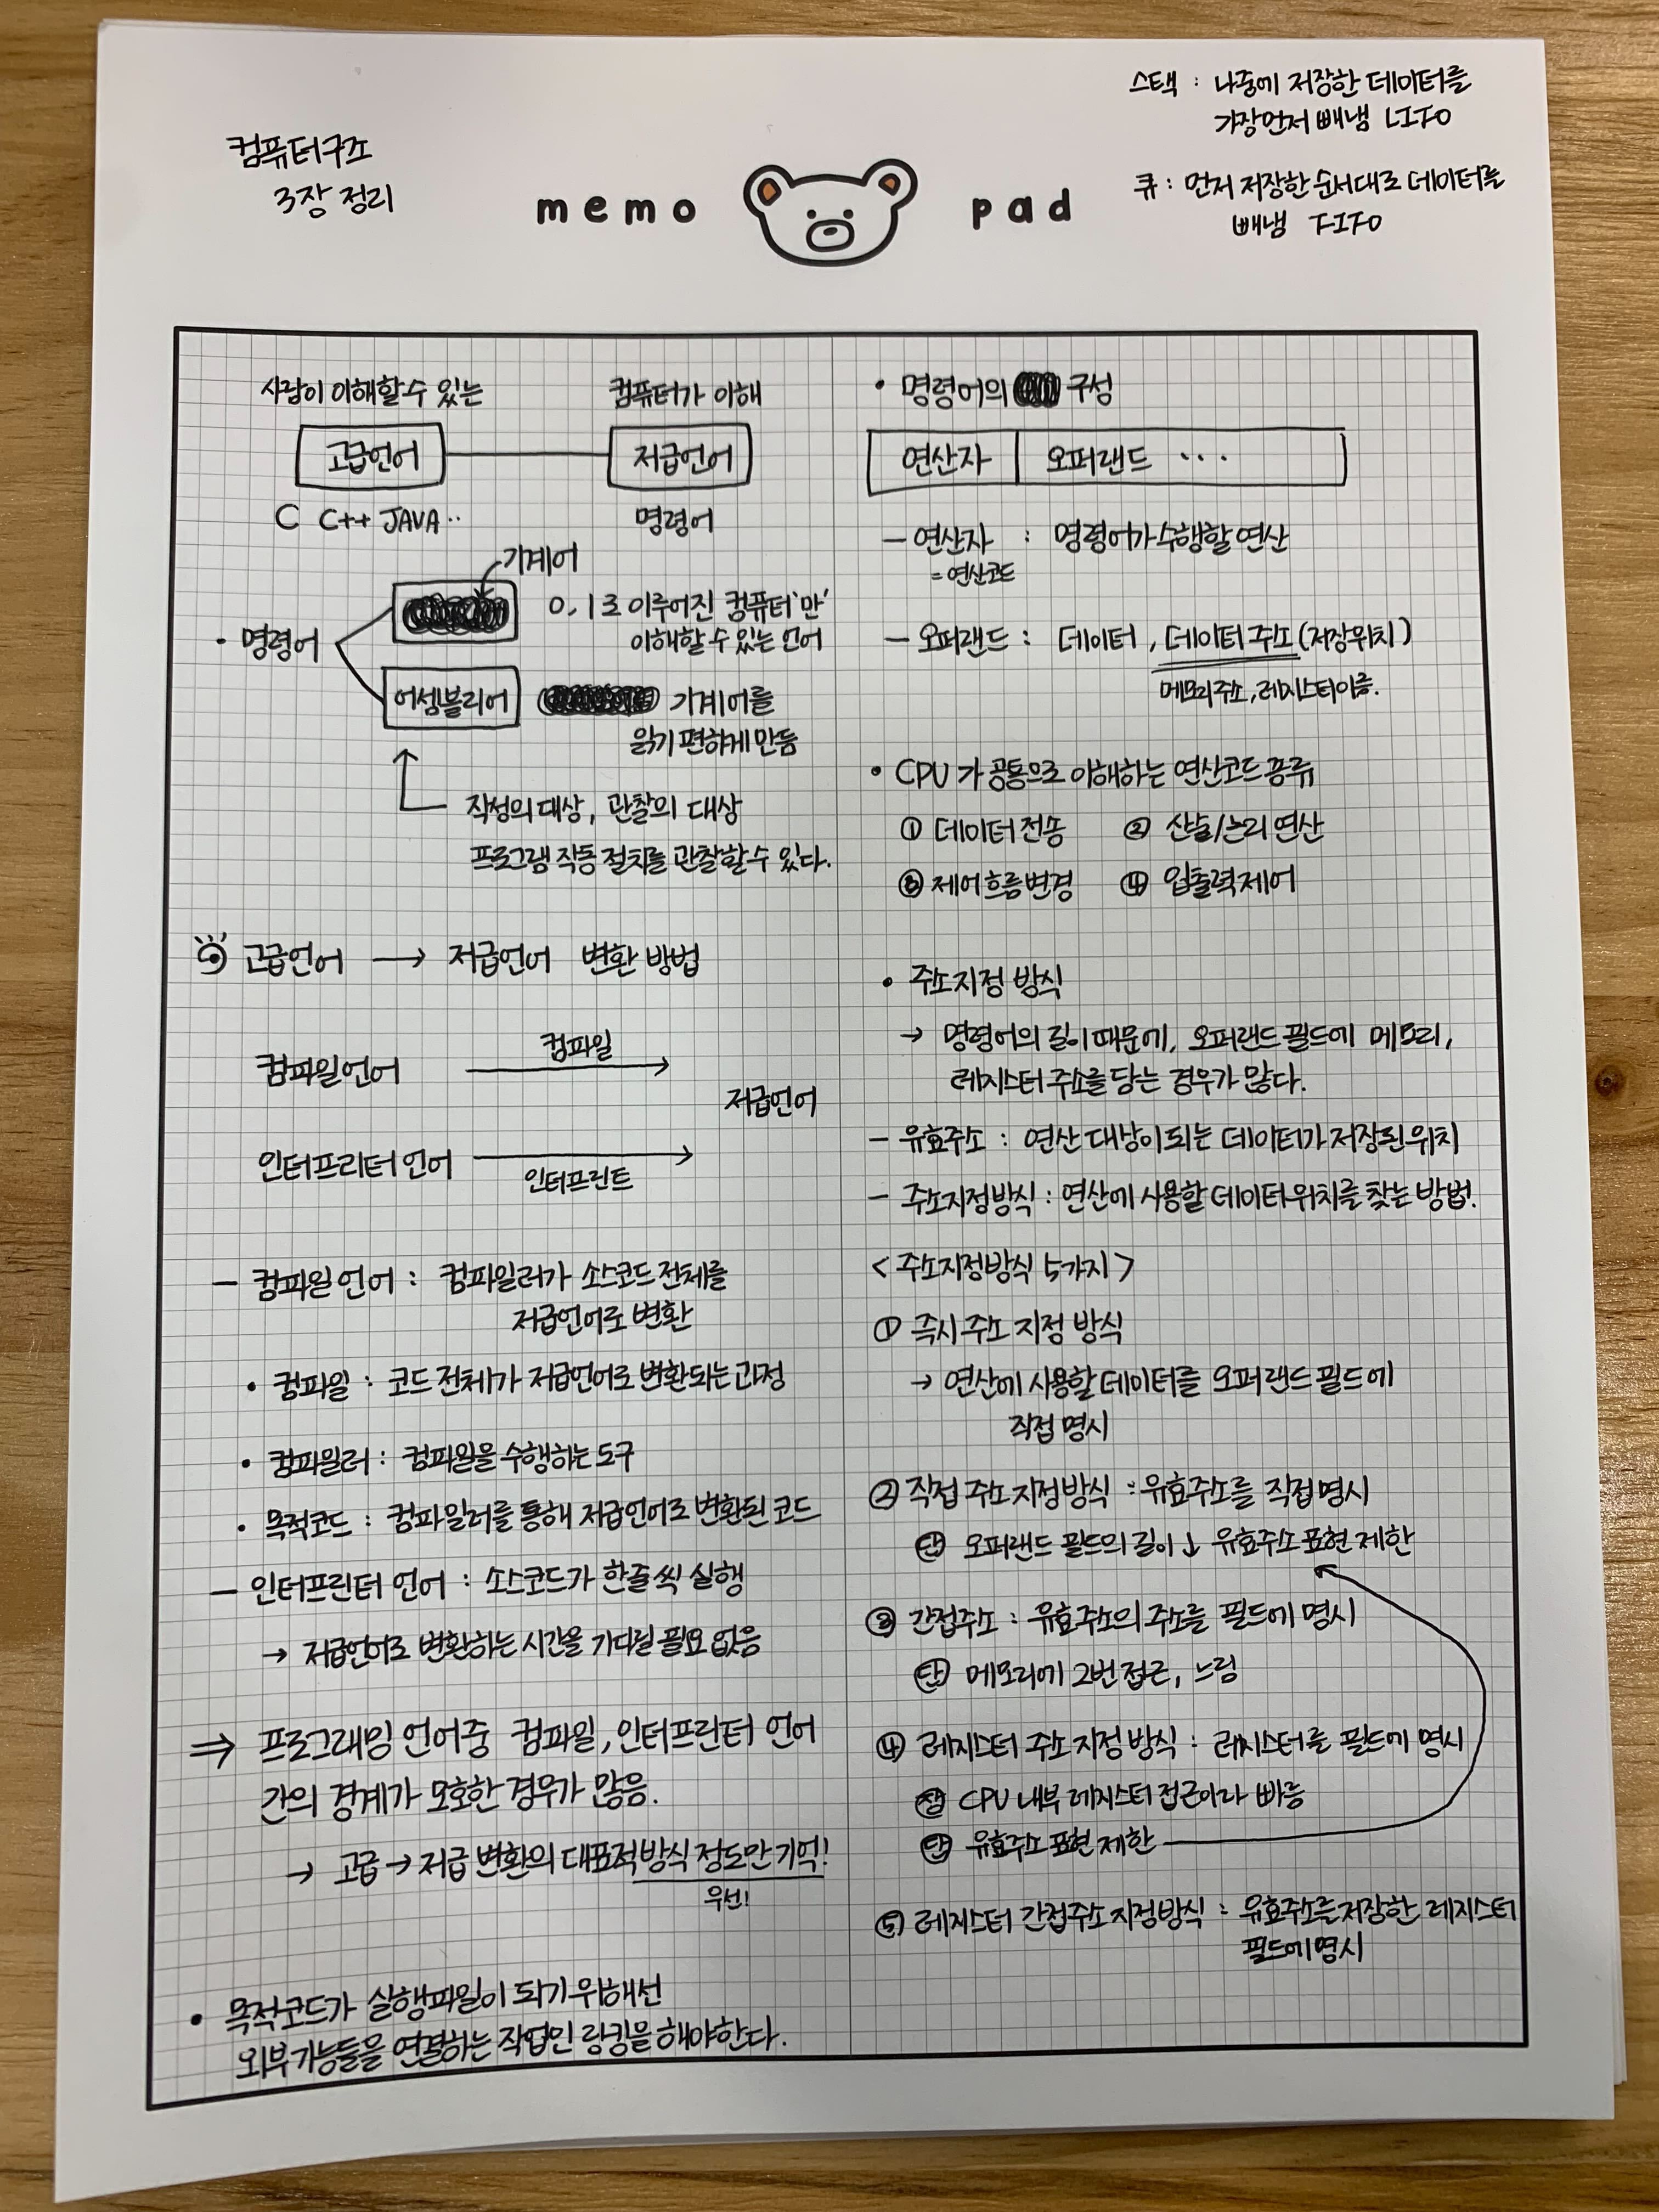 컴퓨터구조
3장 정리
memo pad
스택 : 나중에 저장한 데이터를
가장먼저 빼냄 LIFO
큐 : 먼저 저장한 순서대로 데이터를
빼냄 FIFO
사람이 이해할 수 있는
컴퓨터가 이해
고급언어
저급언어
C C++ JAVA ..
명령어
기계어
• 명령어
0, 1로 이루어진 컴퓨터 '만'
이해할 수 있는 언어
어셈블리어
기계어를
읽기 편하게 만듦
작성의 대상, 관찰의 대상
프로그램 작동 절차를 관찰할 수 있다.
고급언어 → 저급언어 변환 방법
컴파일언어
컴파일
저급언어
인터프리터 언어
인터프린트
— 컴파일 언어 : 컴파일러가 소스코드 전체를
저급언어로 변환
• 컴파일 : 코드 전체가 저급언어로 변환되는 과정
• 컴파일러 : 컴파일을 수행하는 도구
• 목적코드 : 컴파일러를 통해 저급언어로 변환된 코드
— 인터프린터 언어 : 소스코드가 한줄씩 실행
→ 저급언어로 변환하는 시간을 기다릴 필요 없음
⇒ 프로그래밍 언어중 컴파일, 인터프린터 언어
간의 경계가 모호한 경우가 많음.
→ 고급 → 저급 변환의 대표적 방식 정도만 기억!
우선!
• 목적코드가 실행파일이 되기 위해선
외부기능들을 연결하는 작업인 링킹을 해야한다.
• 명령어의 구성
연산자 오퍼랜드 ...
— 연산자 : 명령어가 수행할 연산
= 연산코드
— 오퍼랜드 : 데이터, 데이터 주소 (저장위치)
메모리주소, 레지스터이름.
• CPU가 공통으로 이해하는 연산코드 종류
① 데이터 전송 ② 산술/논리 연산
③ 제어흐름변경 ④ 입출력제어
• 주소지정 방식
→ 명령어의 길이 때문에, 오퍼랜드 필드에 메모리,
레지스터 주소를 담는 경우가 많다.
— 유효주소 : 연산 대상이 되는 데이터가 저장된 위치
— 주소지정방식 : 연산에 사용할 데이터 위치를 찾는 방법.
< 주소지정방식 5가지 >
① 즉시 주소 지정 방식
→ 연산에 사용할 데이터를 오퍼랜드 필드에
직접 명시
② 직접 주소지정방식 : 유효주소를 직접 명시
단 오퍼랜드 필드의 길이↓ 유효주소 표현 제한
③ 간접주소 : 유효주소의 주소를 필드에 명시
단 메모리에 2번 접근, 느림
④ 레지스터 주소 지정 방식 : 레지스터를 필드에 명시
장 CPU 내부 레지스터 접근이라 빠름
단 유효주소 표현 제한
⑤ 레지스터 간접주소 지정방식 : 유효주소를 저장한 레지스터
필드에 명시